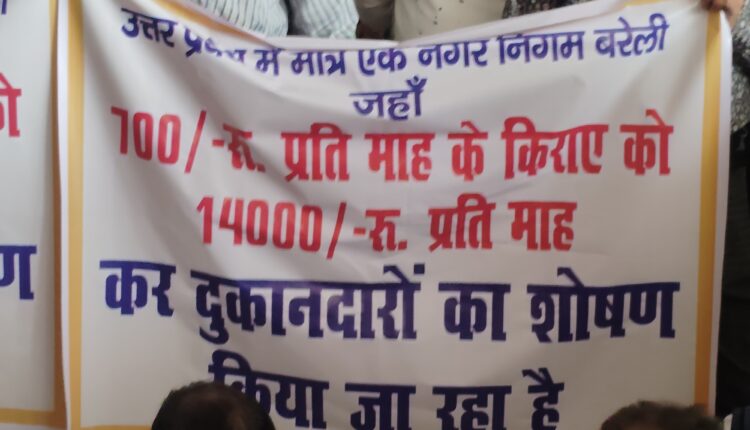 उत्तर प्रदेश में मात्र एक नगर निगम बरेली
जहाँ
700/-रू. प्रति माह के किराए को
14000/-रू. प्रति माह
कर दुकानदारों का शोषण
किया जा रहा है